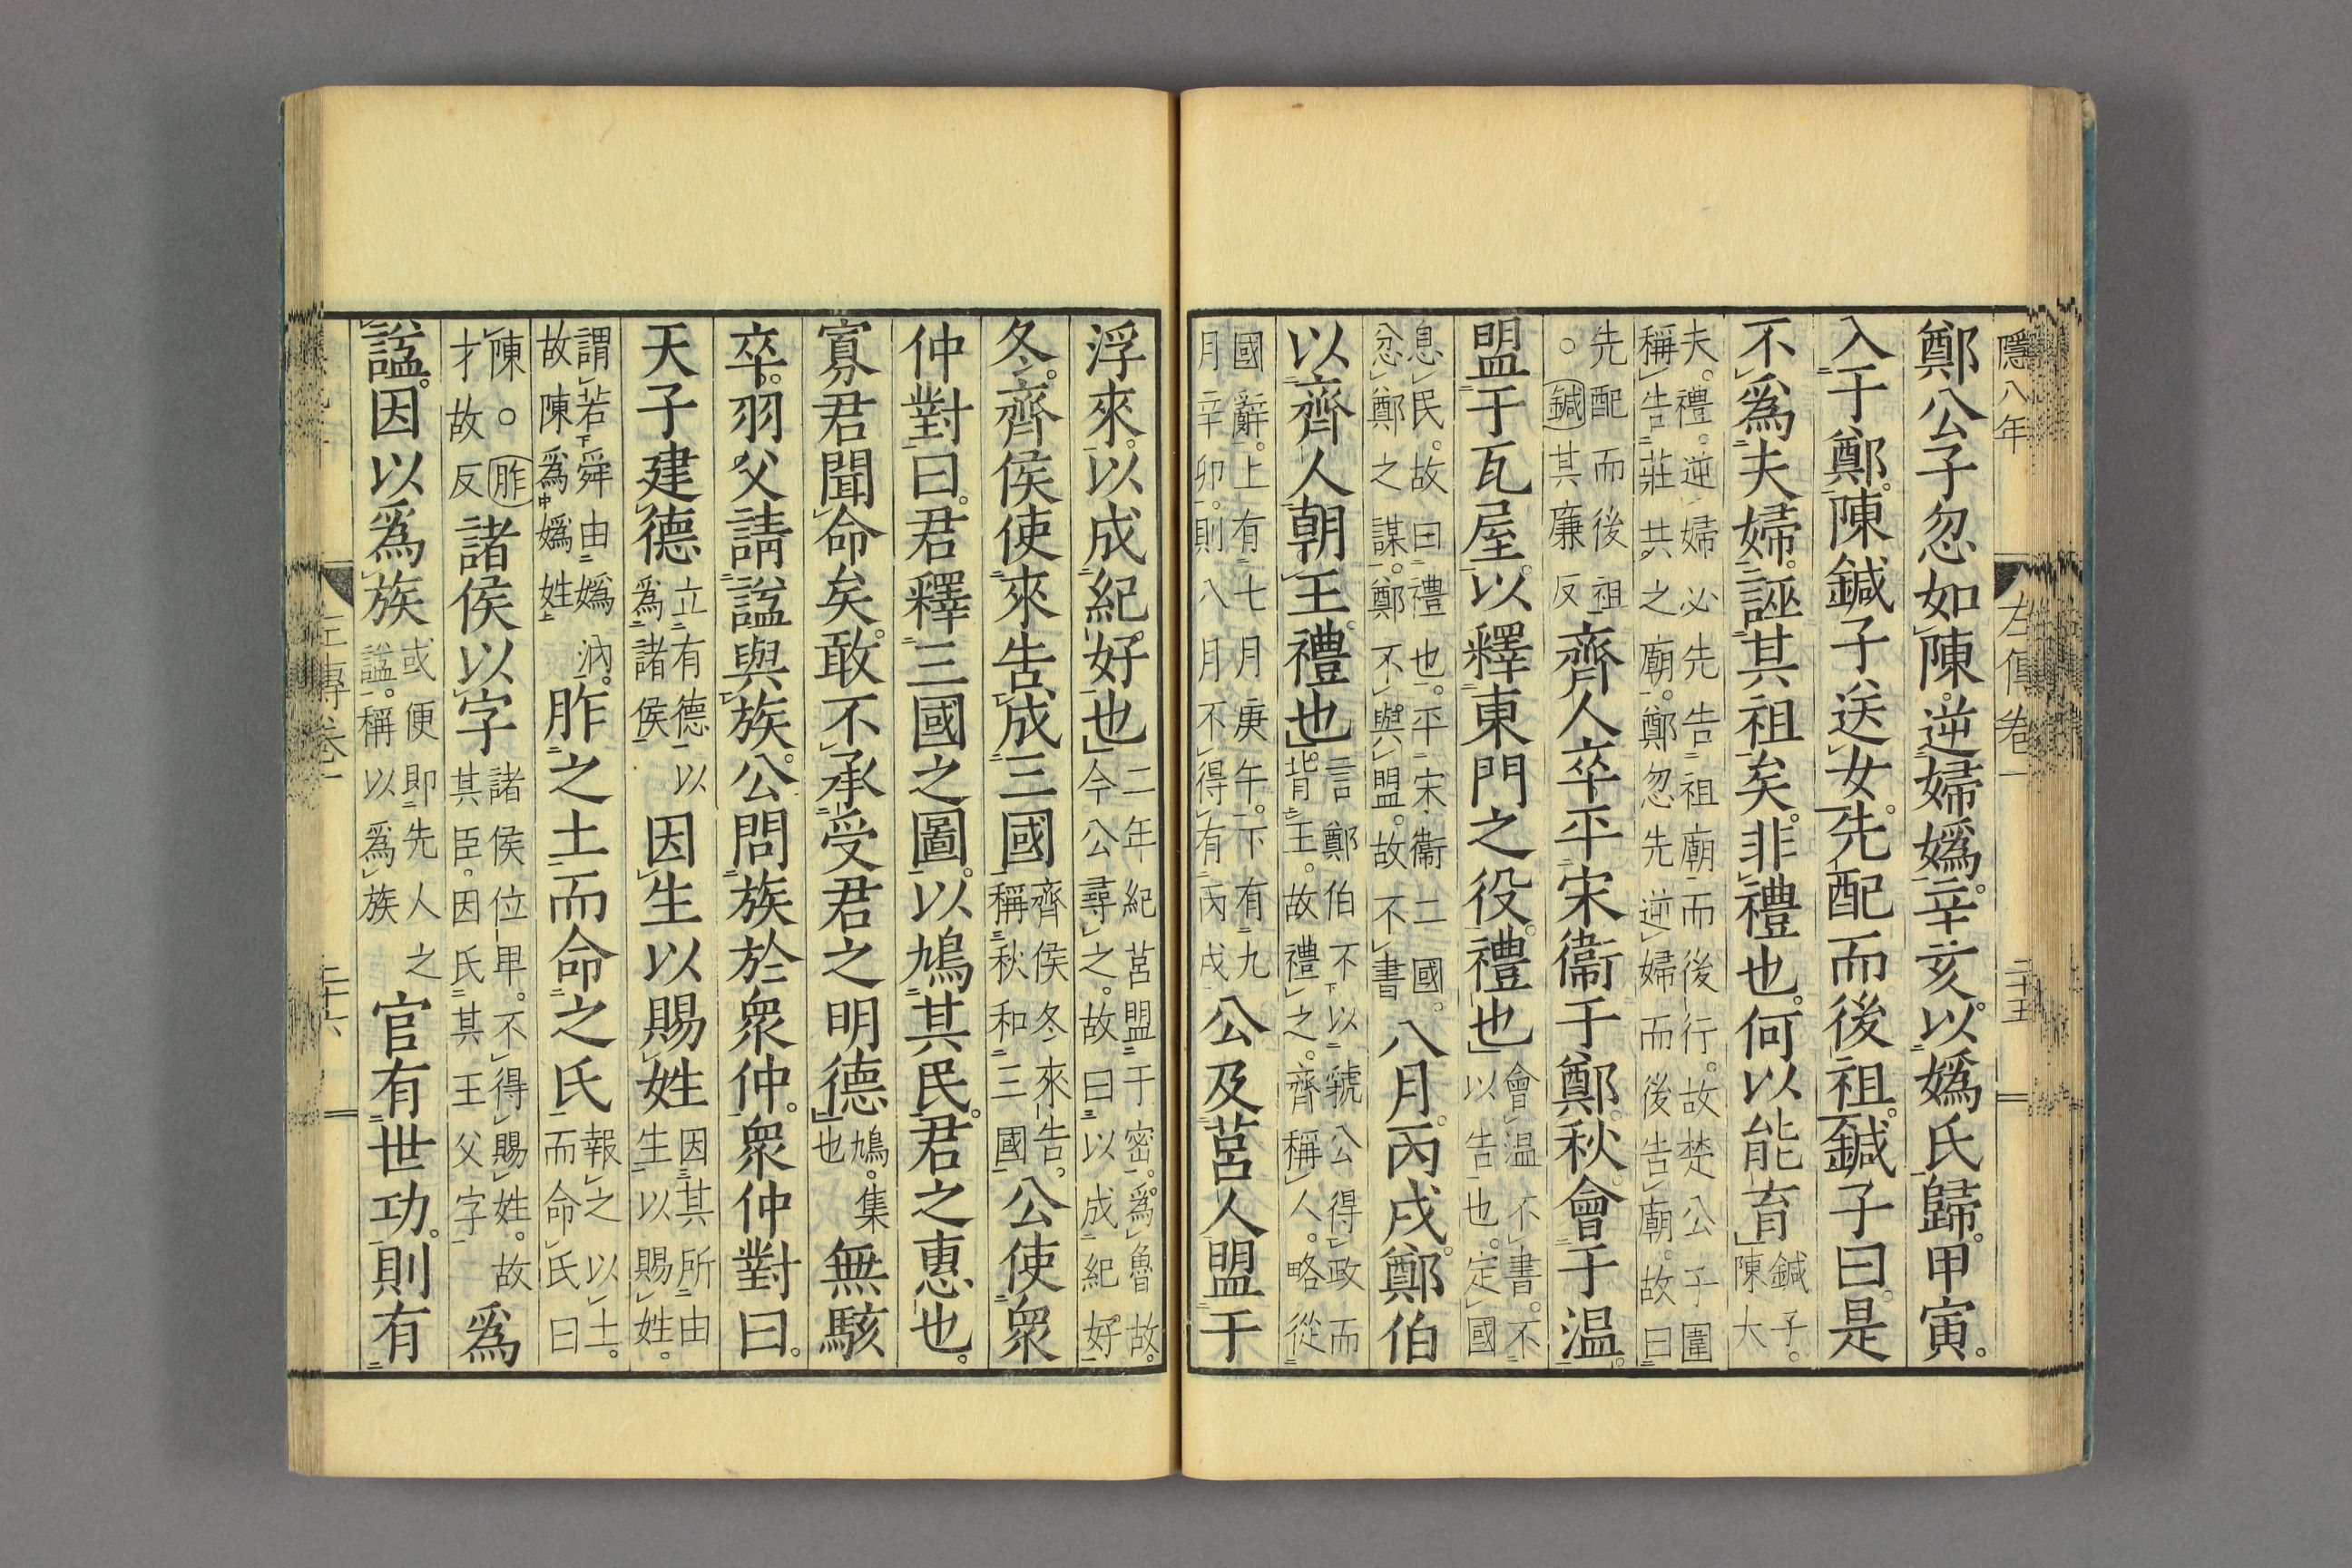 隱八年
左傳卷一
二十五
鄭公子忽如陳。逆婦嬀。辛亥。以嬀氏歸。甲寅。
入于鄭。陳鍼子送女。先配而後祖。鍼子曰。是
不爲夫婦。誣其祖矣。非禮也。何以能育鍼子。陳大
夫。禮。逆婦必先告祖廟而後行。故楚公子圍
稱告莊共之廟。鄭忽先逆婦而後告廟。故曰
先配而後祖
。鍼其廉反
齊人卒平宋衞于鄭。秋。會于温。
盟于瓦屋。以釋東門之役。禮也會温不書。不
以告也。定國
息民。故曰禮也。平宋衞二國。
忿鄭之謀。鄭不與盟。故不書
八月。丙戌。鄭伯
以齊人朝王。禮也言鄭伯不以虢公得政而
背王。故禮之。齊稱人。略從
國辭。上有七月庚午。下有九
月辛卯。則八月不得有丙戌
公及莒人盟于
浮來。以成紀好也二年紀莒盟于密。爲魯故。
今公尋之。故曰以成紀好。
冬。齊侯使來告成三國齊侯冬來告。
稱秋和三國
公使衆
仲對曰。君釋三國之圖。以鳩其民。君之惠也。
寡君聞命矣。敢不承受君之明德鳩。集
也
無駭
卒。羽父請謚與族。公問族於衆仲。衆仲對曰。
天子建德立有德以
爲諸侯
因生以賜姓因其所由
生以賜姓。
謂若舜由嬀汭。
故陳爲嬀姓
胙之土而命之氏報之以土。
而命氏曰
陳。胙
才故反
諸侯以字諸侯位卑。不得賜姓。故
其臣。因氏其王父字
爲
謚。因以爲族或便即先人之
謚。稱以爲族
官有世功。則有
左傳卷一
二十六